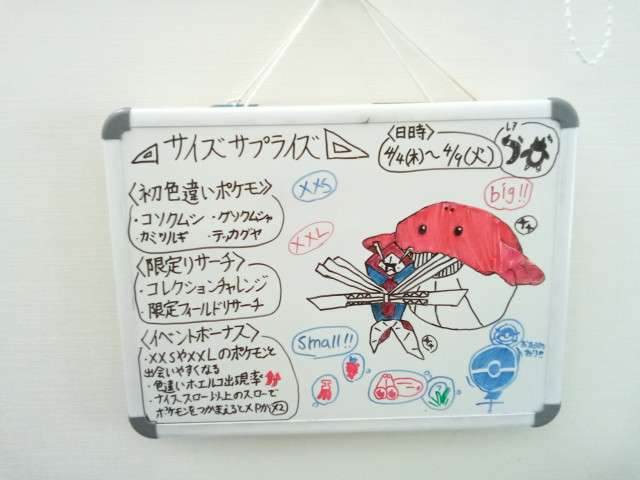 サイズサプライズ
〈日時〉
4/4(木)〜4/9(火)
〈初色違いポケモン〉
・コソクムシ ・グソクムシャ
・カミツルギ ・テッカグヤ
XXS
XXL
big!!
〈限定リサーチ〉
・コレクションチャレンジ
・限定フィールドリサーチ
〈イベントボーナス〉
・XXSやXXLのポケモンと
出会いやすくなる
・色違いホエルコ出現率
・ナイススロー以上のスローで
ポケモンをつかまえるとXPが×2
Small!!